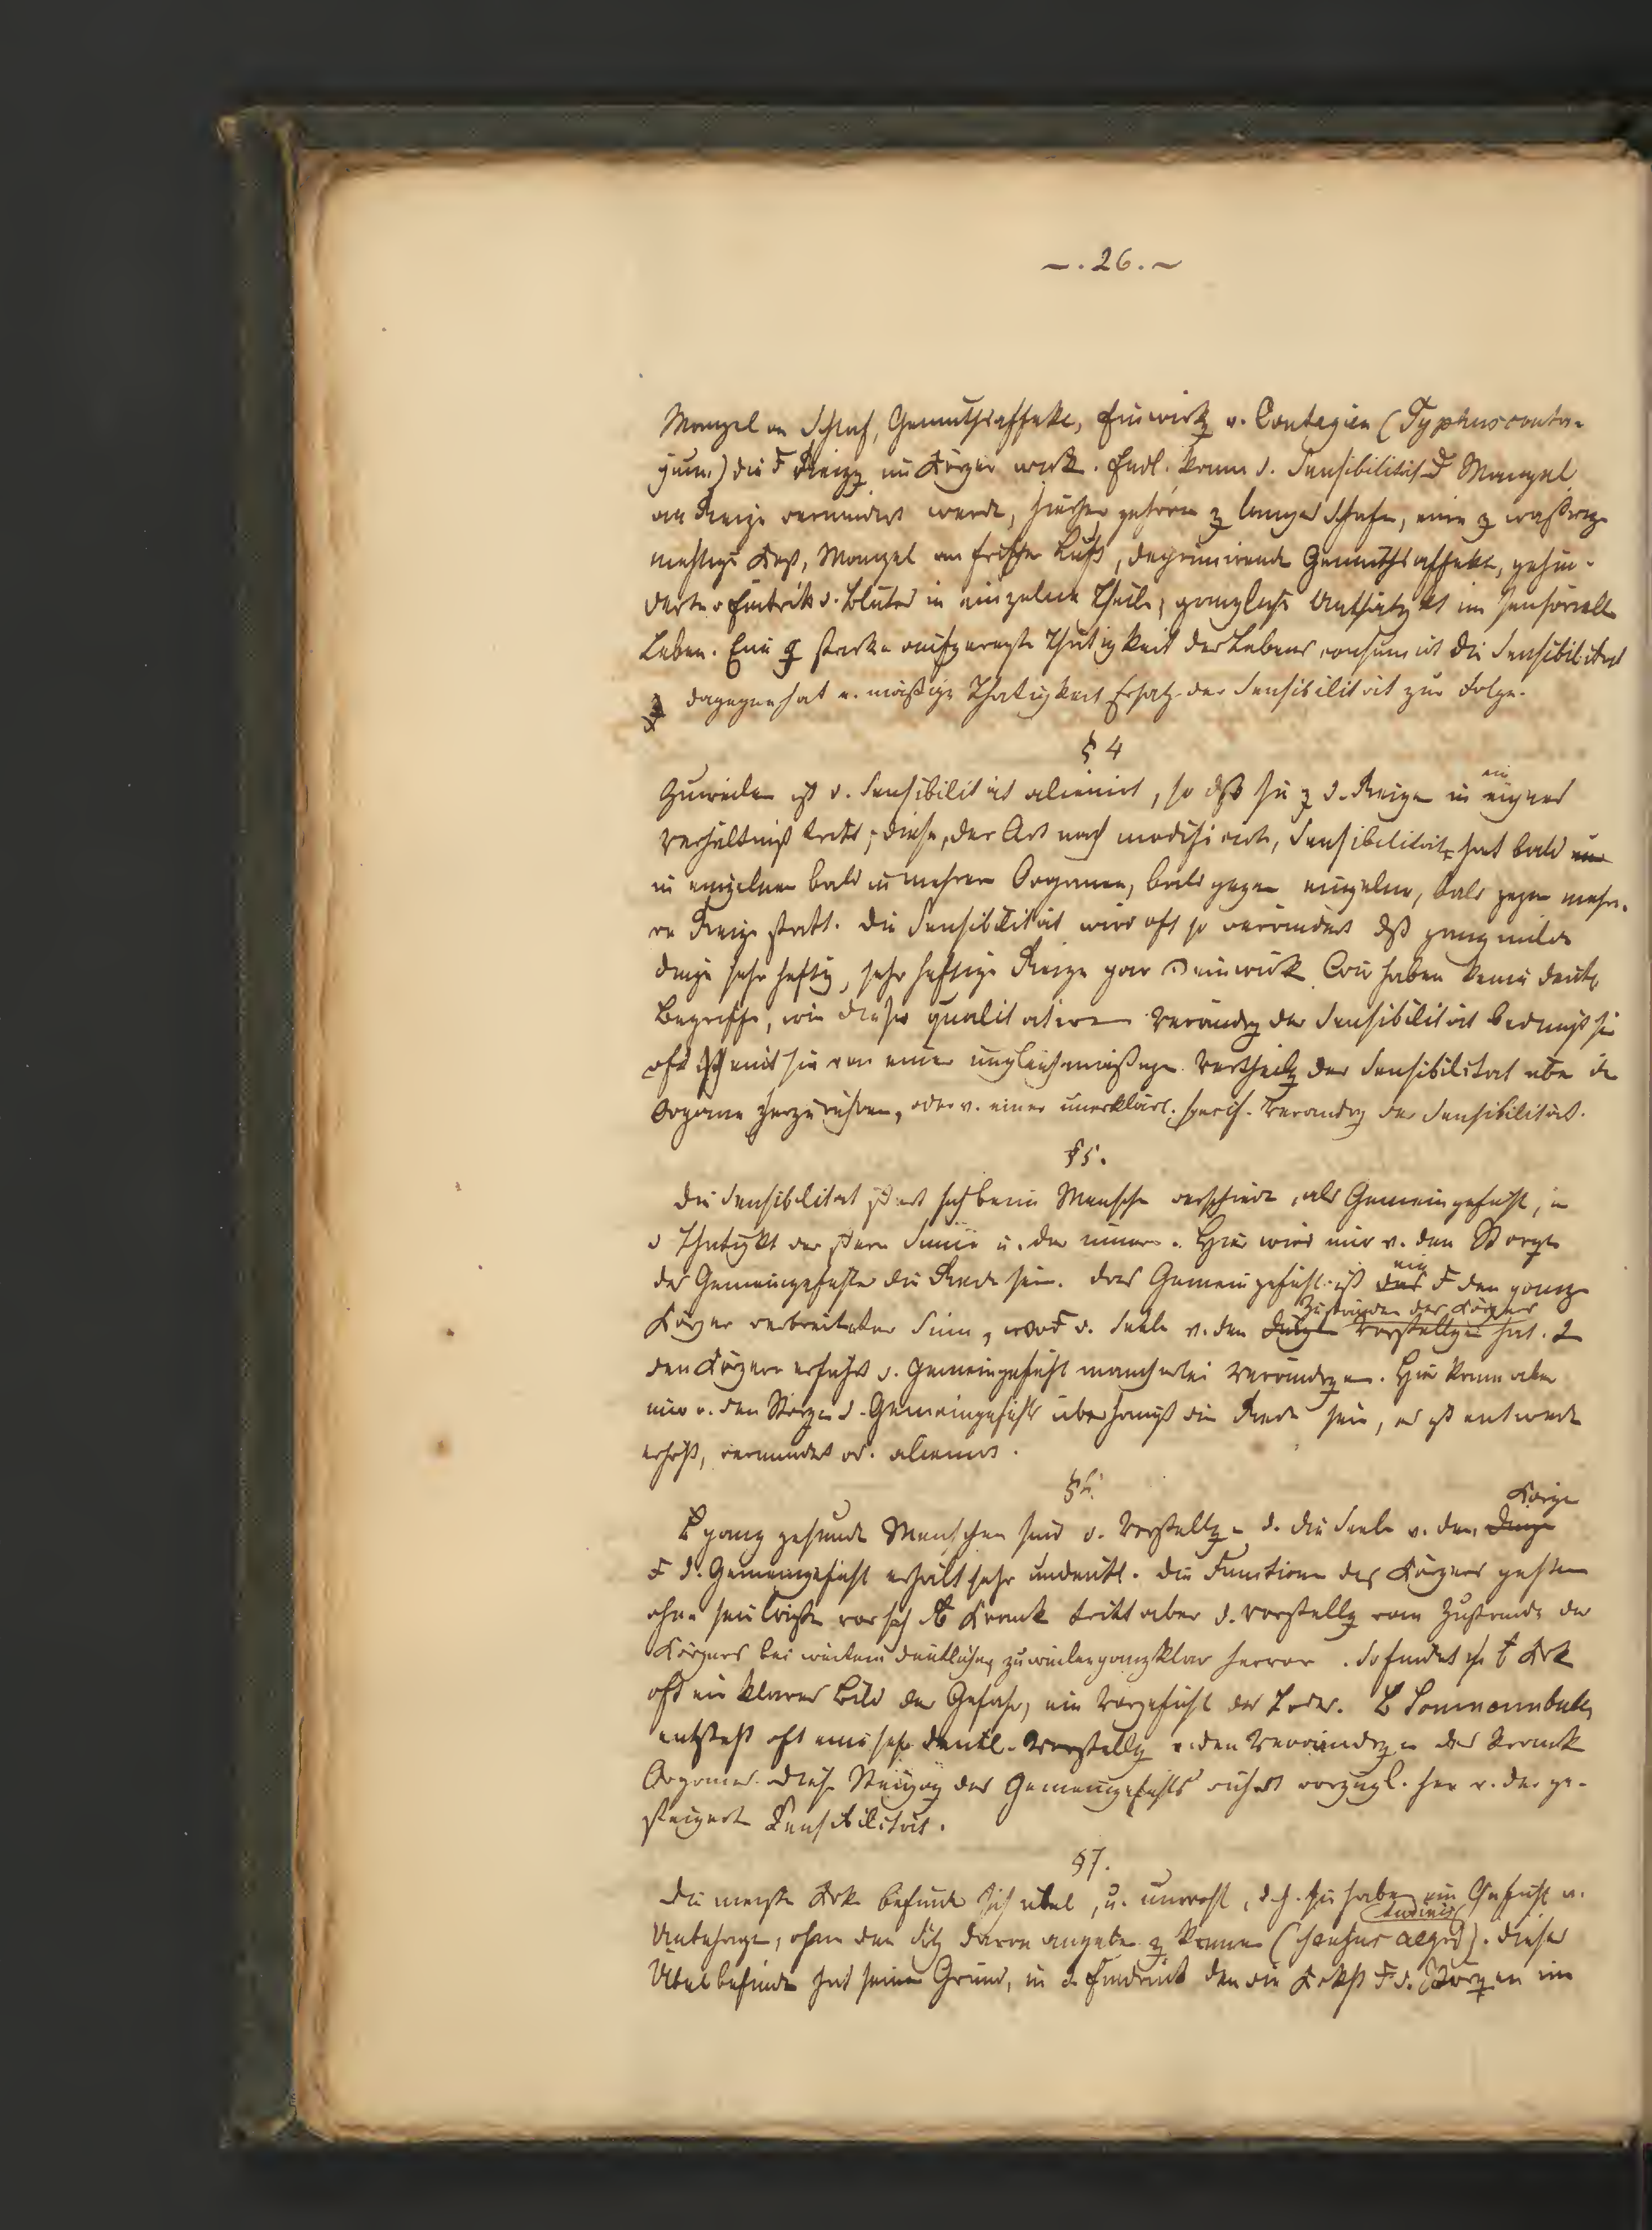 —. 26. —
Mangel an Schlaf, Gemüthsaffekte, Einwirkg v. Contagien (Typhusconta-
gium) die Reizg im Körper wirk. Endl. kann d. Sensibilität Mangel
an Reize vermindert werde, hierher gehören z langes Schlafe, eine z wäßrige
Kost, Mangel an frischer Luft, deprimirende Gemüthsaffekte, gehin-
derter Eintritt d. Blutes in einzelne Theile, gänzliche Unthätigkt im sensoriell
Leben. Eine z starke aufgeregte Thätigkeit des Lebens consumirt die Sensibilität
dagegen hat e. mäßige Thätigkeit Ersatz der Sensibilität zur Folge.
§ 4
Zuweilen ist d. Sensibilität alienirt, so dß sie z d. Reizen in ein eignes
Verhältniß tritt; diese, der Art nach modificirte, Sensibilität hat bald
in einzelnen bald in mehrern Organen, bald gegen einzelne, bald gegen mehre-
re Reize statt. Die Sensibilität wird oft so verändert dß ganz milde
Dinge sehr heftig, sehr heftige Reize gar einwirk. Wir haben keine deutl.
Begriffe, wie diese qualitativen Verändrg der Sensibilität bedingt sei
oft scheint sie von einer ungleichmäßigen Vertheilg der Sensibilität über die
Organe herzurühren, oder v. einer unerklärl. specif. Verändrg der Sensibilität.
§ 5.
Die Sensibilität sich beim Mensche verschiede, als Gemeingefühl, in
d Thätigkt der Sinne u. der innern. Hier wird nur v. den
des Gemeingefühls die Rede sein. Das Gemeingefühl ist ein den ganze
Körper verbreiteter Sinn, d. Seele v. den Zuständen des Körpers Vorstellgen hat.
den Körpern erfährt d. Gemeingefühl mancherlei Verändrgen. Hier kann aber
nur v. den d. Gemeingefühls überhaupt die Rede sein, es ist entwede
erhöht, vermindert od. alienirt.
§ 6.
ganz gesunde Menschen sind d. Vorstellgen d. die Seele v. dem Körper
d. Gemeingefühl erhält sehr undeutl. Die Functionen des Körpers gehen
ohne sein Wissen vor sich Krank tritt aber d. Vorstellg vom Zustande des
Körpers bei weitem deutlicher, zuweilen ganz klar hervor. So findet sich Krk
oft ein klares Bild der Gefahr, ein Vorgefühl des Todes. Somnambule
entsteht oft eine sehr deutl. Vorstellg v. den Verändrgen des krank
Organes. Diese Steigrg des Gemeingefühls rührt vorzügl. her v. der ge-
steigert Sensibilität.
§ 7.
Die meiste Krk befinde sich übel, u. unwohl, d. h. sie habe ein Gefühl v.
Unbehage, ohne den Sitz davon angebe z könne (sensus aegritudinis). Dieses
Übelbefinde hat seinen Grund, in d. Eindruck den die Krkht d. im